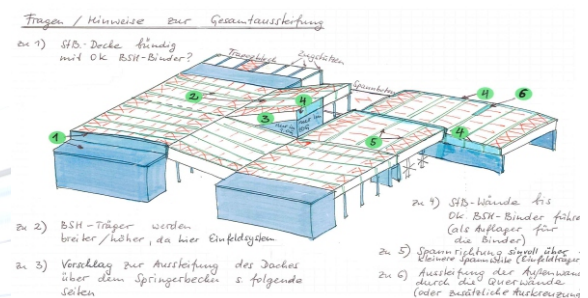 Fragen / Hinweise zur Gesamtaussteifung
zu 1) StB.-Decke bündig
mit OK BSH-Binder?
Zugstäben
Spannbeton
2
4
6
3
4
1
5
4
zu 2) BSH-Träger werden
breiter/höher, da hier Einfeldsystem
zu 3) Vorschlag zur Aussteifung des Daches
über dem Springerbecken s. folgende
Seiten
zu 4) StB-Wände bis
Ok. BSH-Binder führen
(als Auflager für
die Binder)
zu 5) Spannrichtung sinvoll über
kleinere Spannweite (Einfeldträger)
zu 6) Aussteifung der Außenwand
durch die Querwände
(oder zusätzliche Auskreuzung